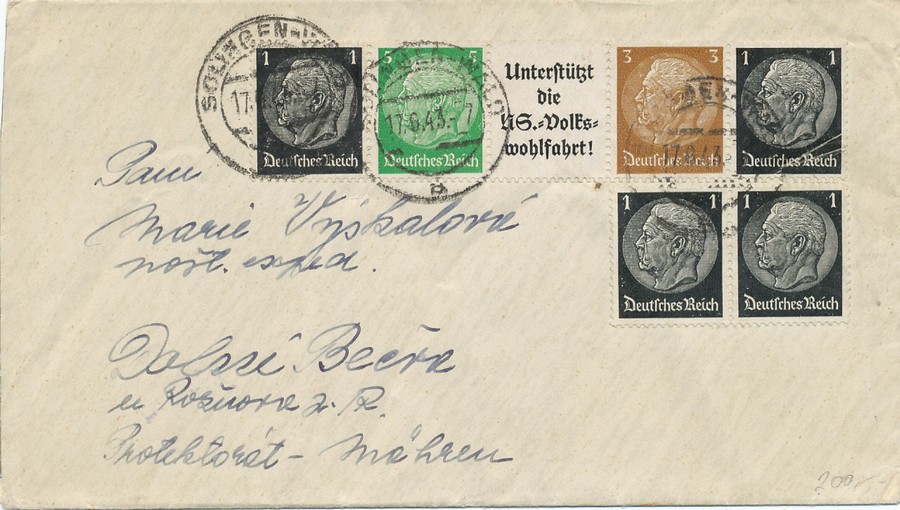 SOLINGEN-W
17.
1 1
Deutsches Reich
5 5
Deutsches Reich
17.6.43.-7
a
Unterstützt
die
NS.-Volks-
wohlfahrt!
3 3
Deutsches Reich
17.6.43.
1 1
Deutsches Reich
1 1
Deutsches Reich
1 1
Deutsches Reich
Paní
Marie Vyskalová
pošt. exped.
Dolní Bečva
u Rožnova p. R.
Protektorát - Mähren
200.-